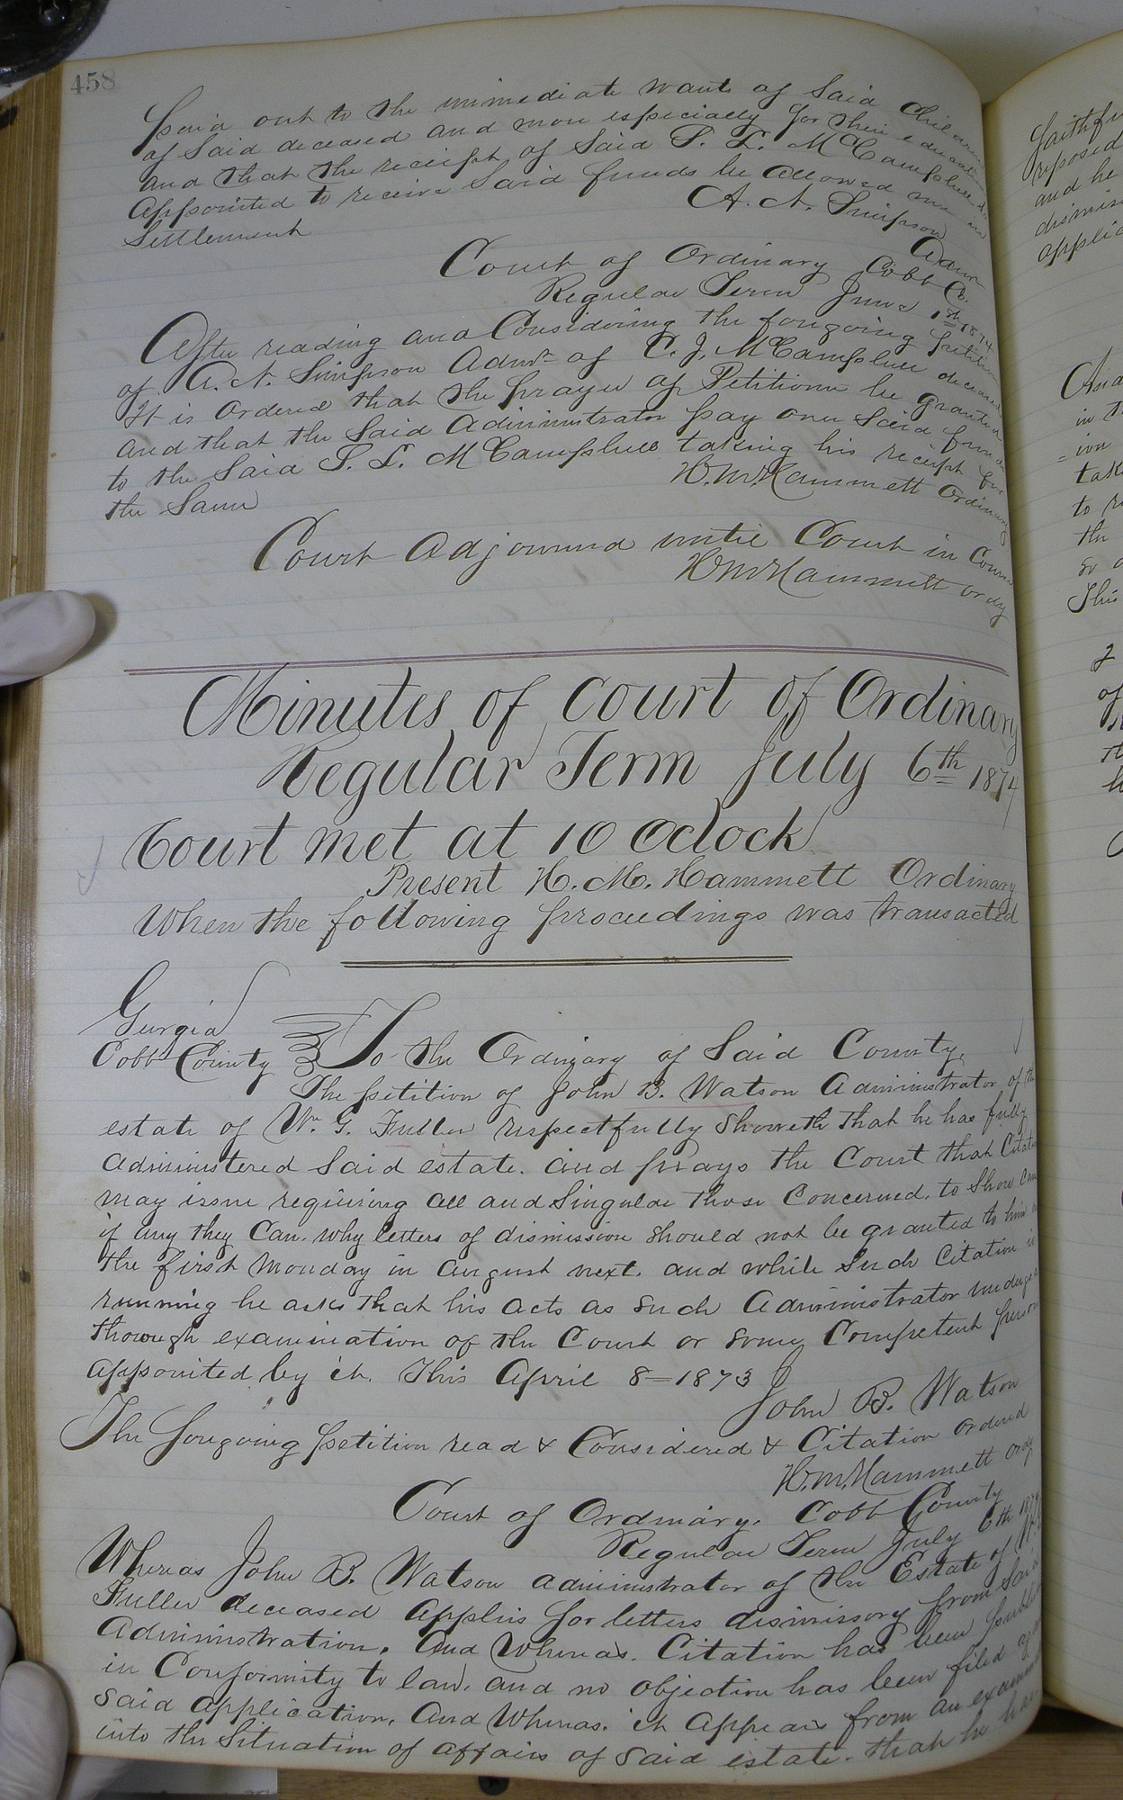 458
paid out to the immediate wants of said children
of said deceased and more especially for their education
and that the receipt of said P. L. McCamphues
appointed to receive said funds be allowed me in
settlement
A. N. Simpson
Admr
Court of Ordinary Cobb Co.
Regular Term June 1st 1874
After reading and Considering the foregoing petition
of A. N. Simpson Admr of C. J. McCamphues deceased
It is Ordered that the prayer of Petitioner be granted
and that the Said Administrator pay over Said funds
to the Said P. L. McCamphues taking his receipt for
the Same
H. M. Hammett Ordinary
Court Adjourned until Court in Course
H M Hammett ordy
Minutes of Court of Ordinary
Regular Term July 6th 1874
Court met at 10 Oclock
Present H. M. Hammett Ordinary
When the following proceedings was transacted
Georgia
Cobb County To the Ordinary of Said County.
The petition of John B. Watson Administrator of the
estate of Wm G. Fuller respectfully Showeth that he has fully
administered Said estate. and prays the Court that Citation
may issue requiring all and Singular those Concerned, to Show Cause
if any they Can. why letters of dismission should not be granted to him on
the first Monday in August next. and while Such Citation is
running he asks that his acts as such Administrator undergo a
thorough examination of the Court or some Competent person
appointed by it. This April 8=1873
John B. Watson
The foregoing petition read & Considered & Citation ordered
H. M. Hammett Ordy
Court of Ordinary. Cobb County
Regular Term July 6th 1874
Whereas John B. Watson administrator of the Estate of
Fuller deceased applies for letters dismissory from Said
Administration. And Whereas. Citation has been published
in Conformity to law. and no objection has been filed
said application. And Whereas. it appears from an
into the Situation of affairs of said estate. that he has